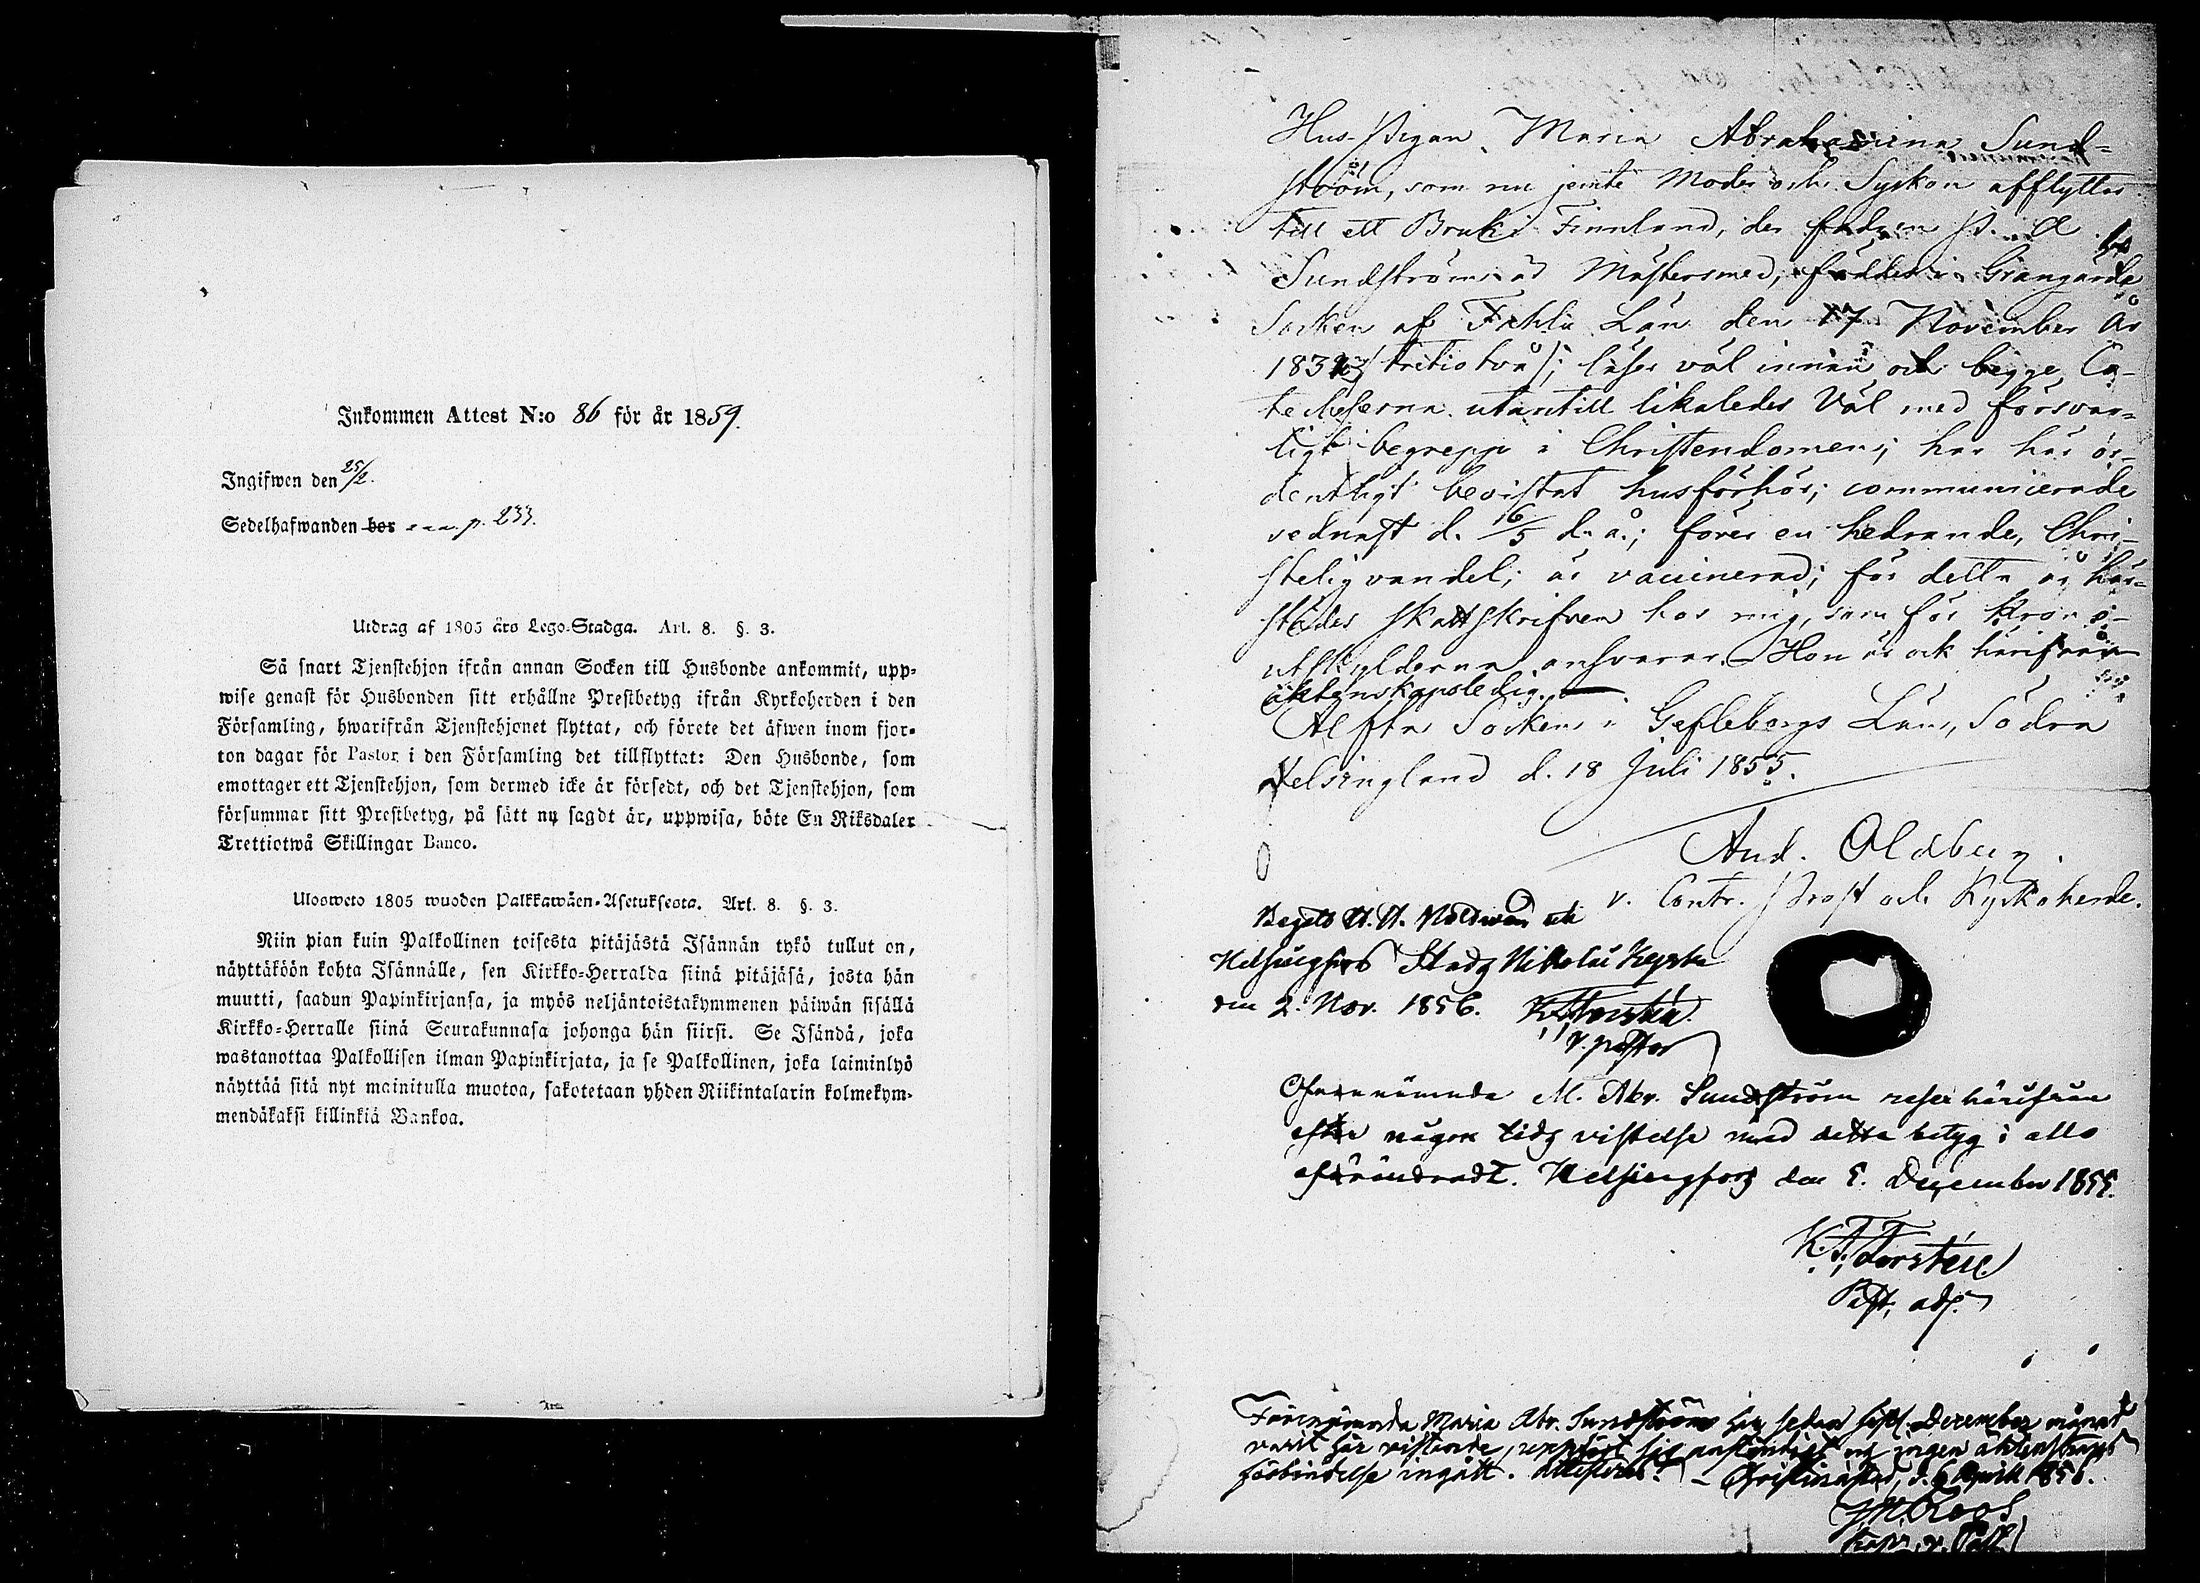 Inkommen Attest N:o 86 för år 1859.
Ingifwen den 25/2.
Sedelhafwanden bor p. 233.
Utdrag af 1805 års Lego-Stadga. Art. 8. §. 3.
Så snart Tjenstehjon ifrån annan Socken till Husbonde ankommit, upp-
wise genast för Husbonden sitt erhållne Prestbetyg ifrån Kyrkoherden i den
Församling, hwarifrån Tjenstehjonet flyttat, och förete det äfwen inom fjor-
ton dagar för Pastor i den Församling det tillflyttat: Den Husbonde, som
emottager ett Tjenstehjon, som dermed icke är försedt, och det Tjenstehjon, som
försummar sitt Prestbetyg, på sätt nu sagdt är, uppwisa, böte En Riksdaler
Trettiotwå Skillingar Banco.
Ulosweto 1805 wuoden Palkkawäen-Asetuksesta. Art. 8. §. 3.
Niin pian kuin Palkollinen toisesta pitäjästä Isännän tykö tullut on,
näyttäköön kohta Isännälle, sen Kirkko-Herralda siinä pitäjäsä, josta hän
muutti, saadun Papinkirjansa, ja myös neljäntoistakymmenen päiwän sisällä
Kirkko-Herralle siinä Seurakunnasa johonga hän siirsi. Se Isändä, joka
wastanottaa Palkollisen ilman Papinkirjata, ja se Palkollinen, joka laiminlyö
näyttää sitä nyt mainitulla muotoa, sakotetaan yhden Riikintalarin kolmekym-
mendäkaksi killinkiä Bankoa.
Hus-Pigan, Maria Abrahamina Sund-
ström, som nu jemte Moder och Syskon afflyttar
till ett Bruk i Finnland, der fadren P. A.
Sundström är Mästersmed, föddes i Grangärde
Socken af Fahlu Län den 17 November År
1832 /tretiotvå/; läser väl innan och begge Ca-
techeserna utantill likaledes Väl med försvar-
ligt begrepp i Christendomen; har här or-
dentligt bevistat husförhör; communicerade
sednast d. 16/5 d. å.; förer en hedrande, Chri-
stelig vandel; är vaccinerad; för detta år här-
städes skattskrifven hos mig, som för Krono-
utskylderna ansvarar. Hon är ock härifrån
äktenskapsledig.
Alfta Socken i Gefleborgs Län, Södra
Helsingland d. 18 Juli 1855.
And. Oldberg.
v. Contr. Prost och Kyrkoherde.
Helsingfors Stads Nikolai Kyrka
den 2. Nov. 1856.
V. pastor
Ofvannämnda M. Abr. Sundström reser härifrån
efter någon tids vistelse med detta betyg i allo
oförändradt. Helsingfors den 5. December 1855.
K. F. Forstén
Past. adj.
Förenämnda Maria Abr. Sundström har sedan sistl. December månad
varit här vistande, uppfört sig anständigt och ingen äktenskaps
förbindelse ingått. Attesteras. Christinestad, d. 6 April 1856.